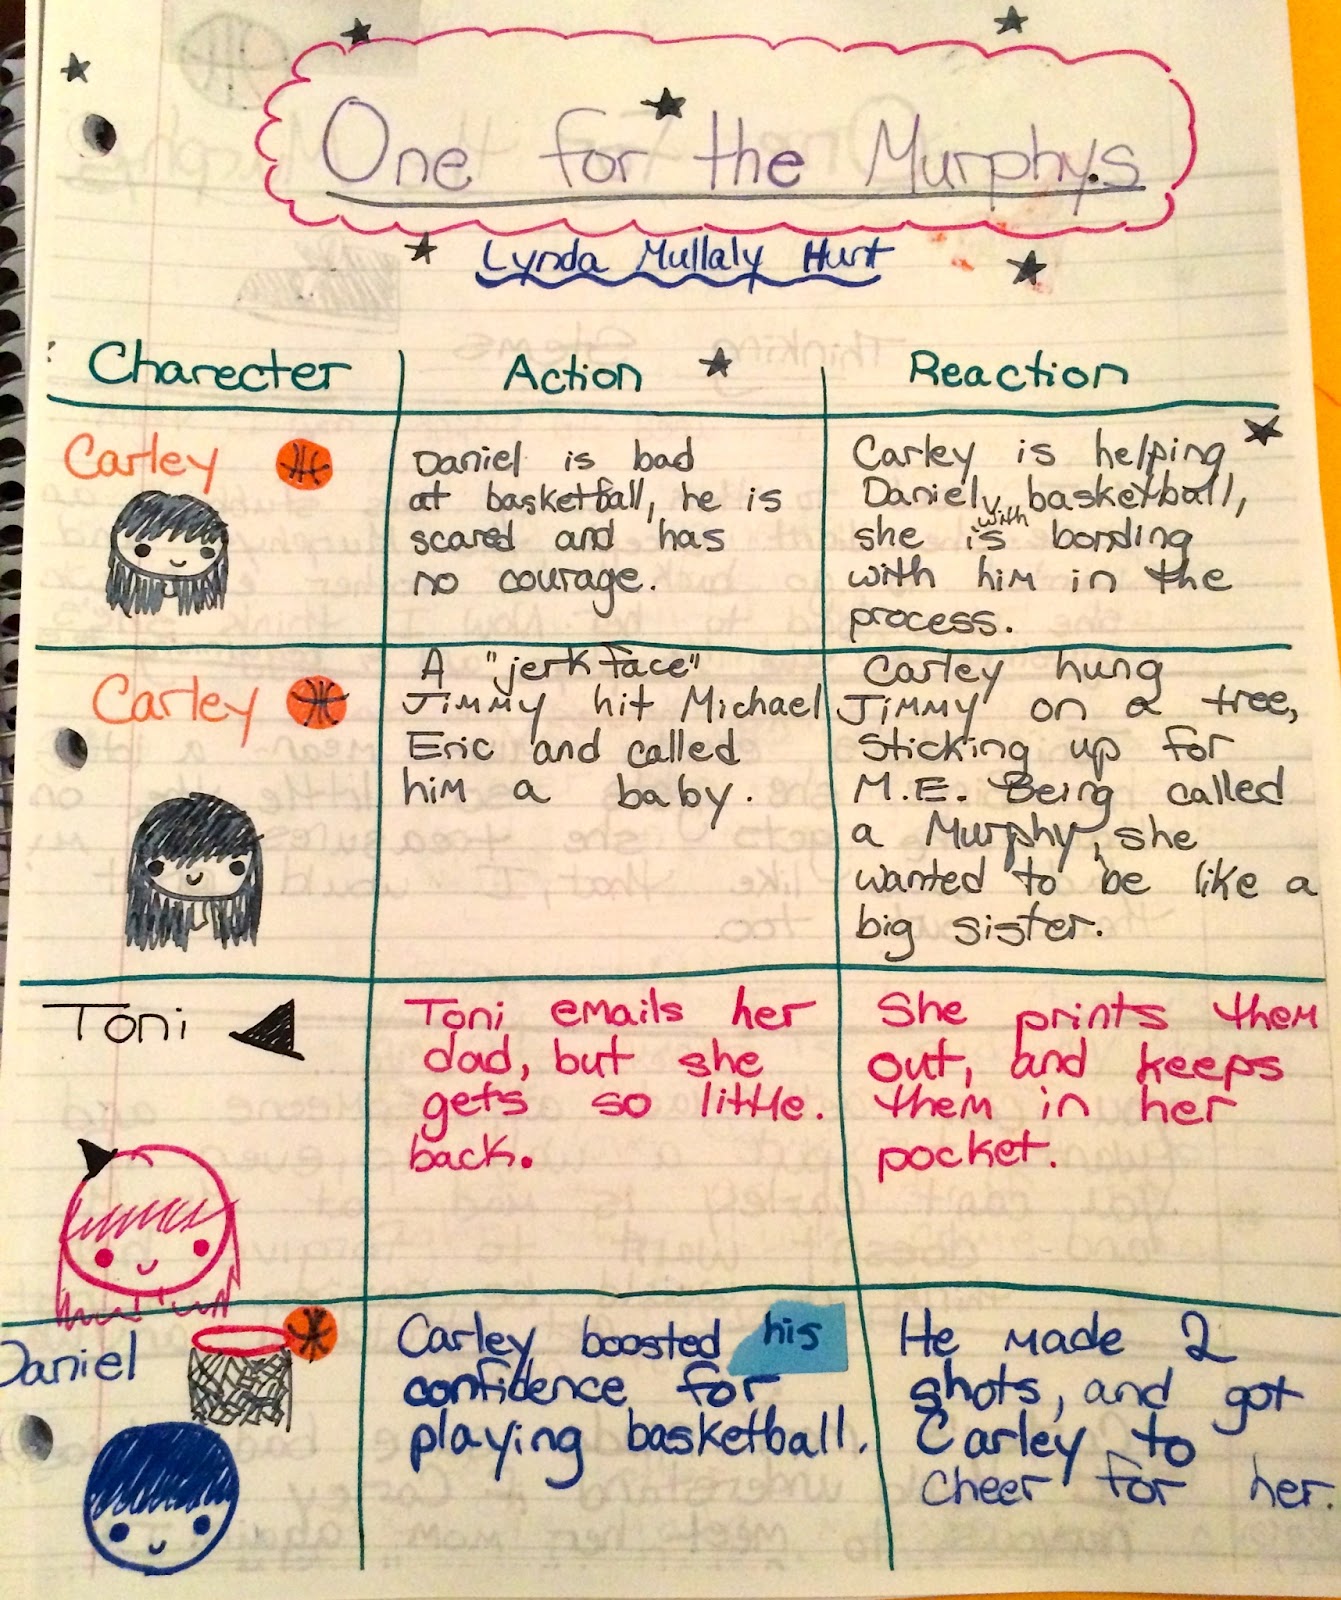 One for the Murphy.s
Lynda Mullaly Hunt
Charecter Action Reaction
Carley
Daniel is bad
at basketball, he is
scared and has
no courage.
Carley is helping
Daniel with basketball,
she is bonding
with him in the
process.
Carley
A "jerk face"
Jimmy hit Michael
Eric and called
him a baby.
Carley hung
Jimmy on a tree,
sticking up for
M.E. Being called
a Murphy, she
wanted to be like a
big sister.
Toni
Toni emails her
dad, but she
gets so little.
back.
She prints them
out, and keeps
them in her
pocket.
Daniel
Carley boosted his
confidence for
playing basketball.
He made 2
shots, and got
Carley to
cheer for her.